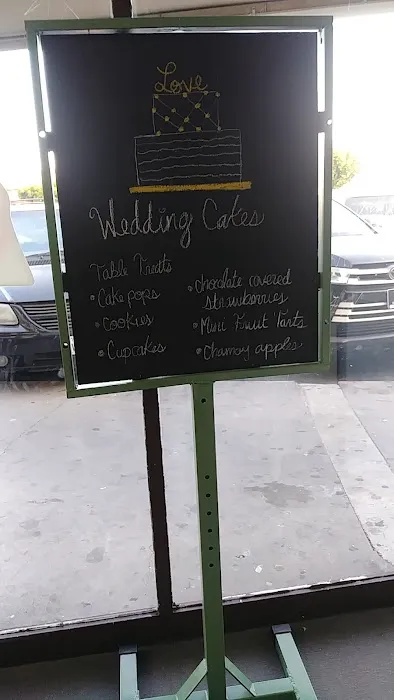 Love
Wedding Cakes
Table Treats
• Cake pops
• Cookies
• Cupcakes
• chocolate covered
strawberries
• Mini Fruit Tarts
• Chamoy apples